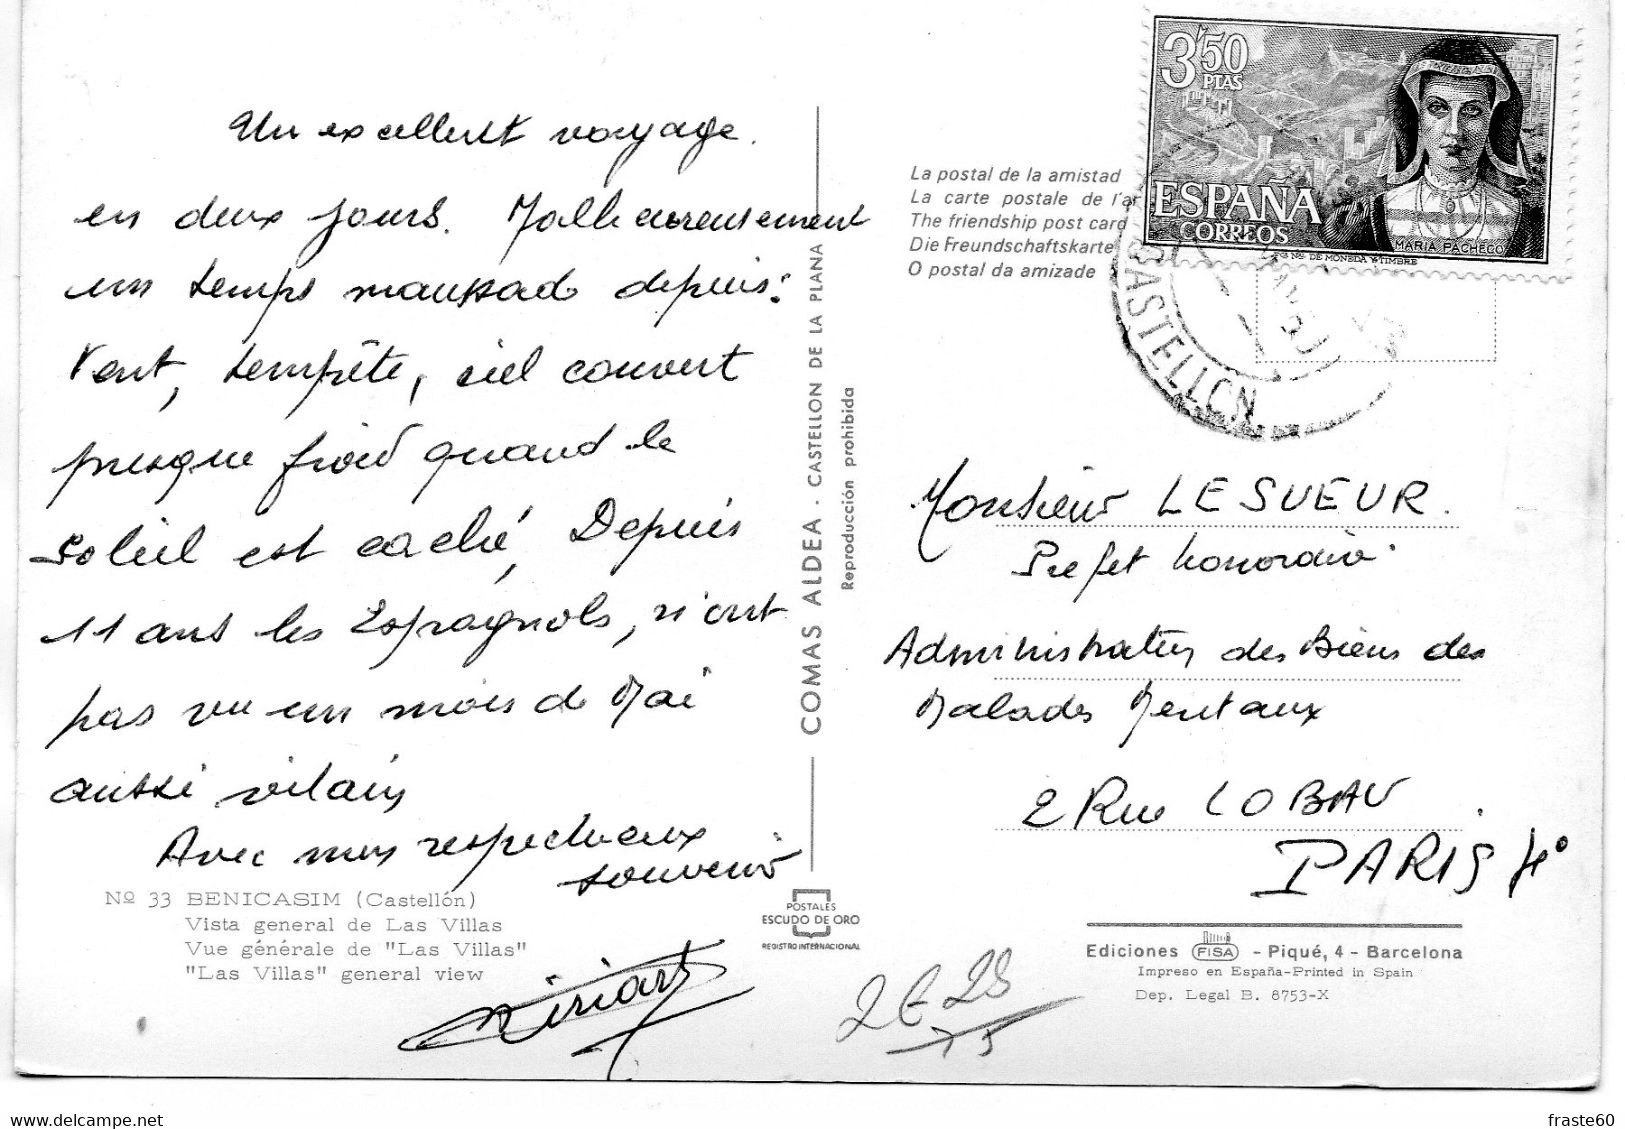 Un excellent voyage.
en deux jours. Malheureusement
un temps maussade depuis:
Vent, tempête, ciel couvert
presque froid quand le
soleil est caché, Depuis
11 ans les Espagnols, n'ont
pas vu un mois de Mai
aussi vilain
Avec mes respectueux
souvenir
Nº 33 BENICASIM (Castellón)
Vista general de Las Villas
Vue générale de "Las Villas"
"Las Villas" general view
COMAS ALDEA · CASTELLON DE LA PLANA
Reproducción prohibida
POSTALES
ESCUDO DE ORO
REGISTRO INTERNACIONAL
3'50
PTAS
ESPAÑA
CORREOS
MARIA PACHECO
DE MONEDA Y TIMBRE
CASTELLON
La postal de la amistad
La carte postale de l'a
The friendship post card
Die Freundschaftskarte
O postal da amizade
Monsieur LESUEUR.
Prefet honoraire
Administrateur des Biens des
Malades Mentaux
2 Rue LOBAU
PARIS 4°
Ediciones FISA - Piqué, 4 - Barcelona
Impreso en España-Printed in Spain
Dep. Legal B. 8753-X
delcampe.net
fraste60